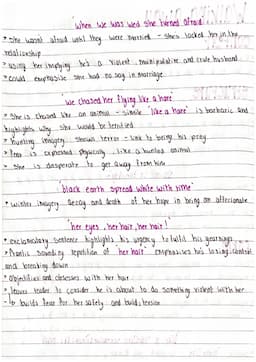 'when we was wed she turned afraid'
• She wasn't afraid until they were married - shes locked by in the
relationship
• using 'her' implying he's a violent, manipulative and cruel husband
• could emphasise she had no say in marriage
'we chased her flying like a hare'
• She is chased like an animal - simile 'like a hare' is barbaric and
highlights why she would be terrified
• hunting imagery shows terror - link to being his prey
• Fear is expressed physically like a hunted animal
• She is desperate to get away from him
'black earth spread white with rime'
• winter imagery decay and death of her hope in being an affectionate
'her eyes, her hair, her hair!'
• exclamatory sentence highlights his urgency to fulfil his yearnings
• Manic sounding repetition of 'her hair' emphasises he's losing control
and breaking down
• objectifies and obsesses with her hair
• leaves reader to consider he is about to do something violent with her
→ builds fear for her safety and builds tension